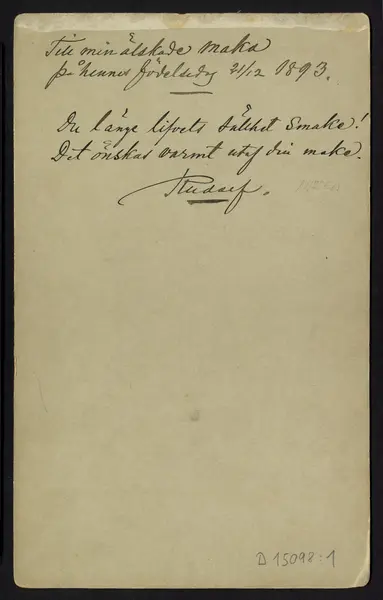 Till min älskade maka
på hennes födelsedag 21/12 1893.
Du länge lifvets sällhet smake!
Det önskas varmt utaf din make.
Rudolf.
D 15098:1